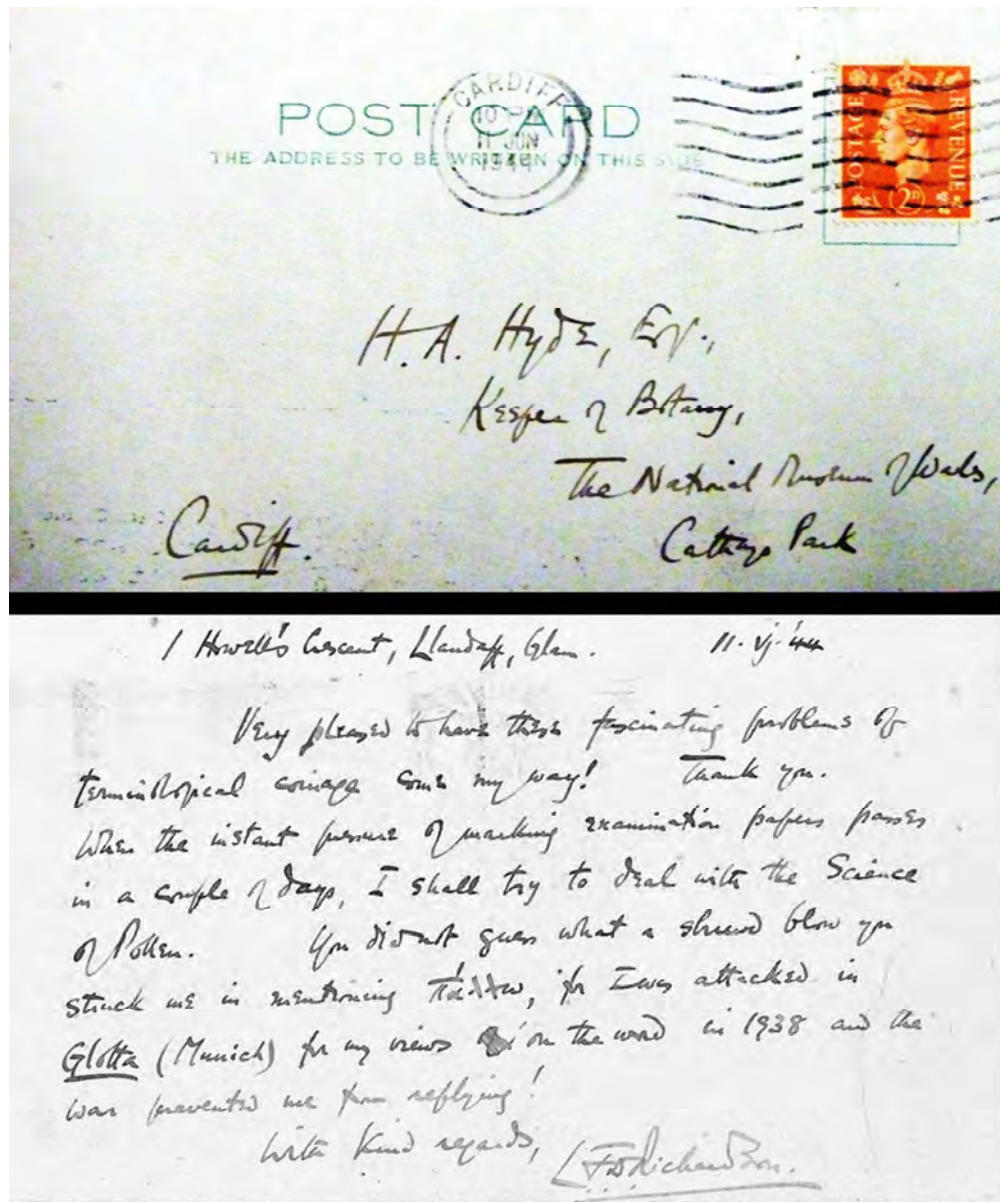 POST CARD
THE ADDRESS TO BE WRITTEN ON THIS SIDE
CARDIFF
10 PM
11 JUN
1944
POSTAGE REVENUE
2D
H. A. Hyde, Esq.,
Keeper of Botany,
The National Museum of Wales,
Cathays Park
Cardiff.
1 Howell's Crescent, Llandaff, Glam. 11. vj. '44
Very pleased to have these fascinating problems of
terminological coinage come my way! Thank you.
When the instant pressure of marking examination papers passes
in a couple of days, I shall try to deal with the Science
of Pollen. You did not guess what a shrewd blow you
struck me in mentioning πάλλω, for I was attacked in
Glotta (Munich) for my views on the word in 1938 and the
war prevented me from replying!
With kind regards, LJD Richardson.